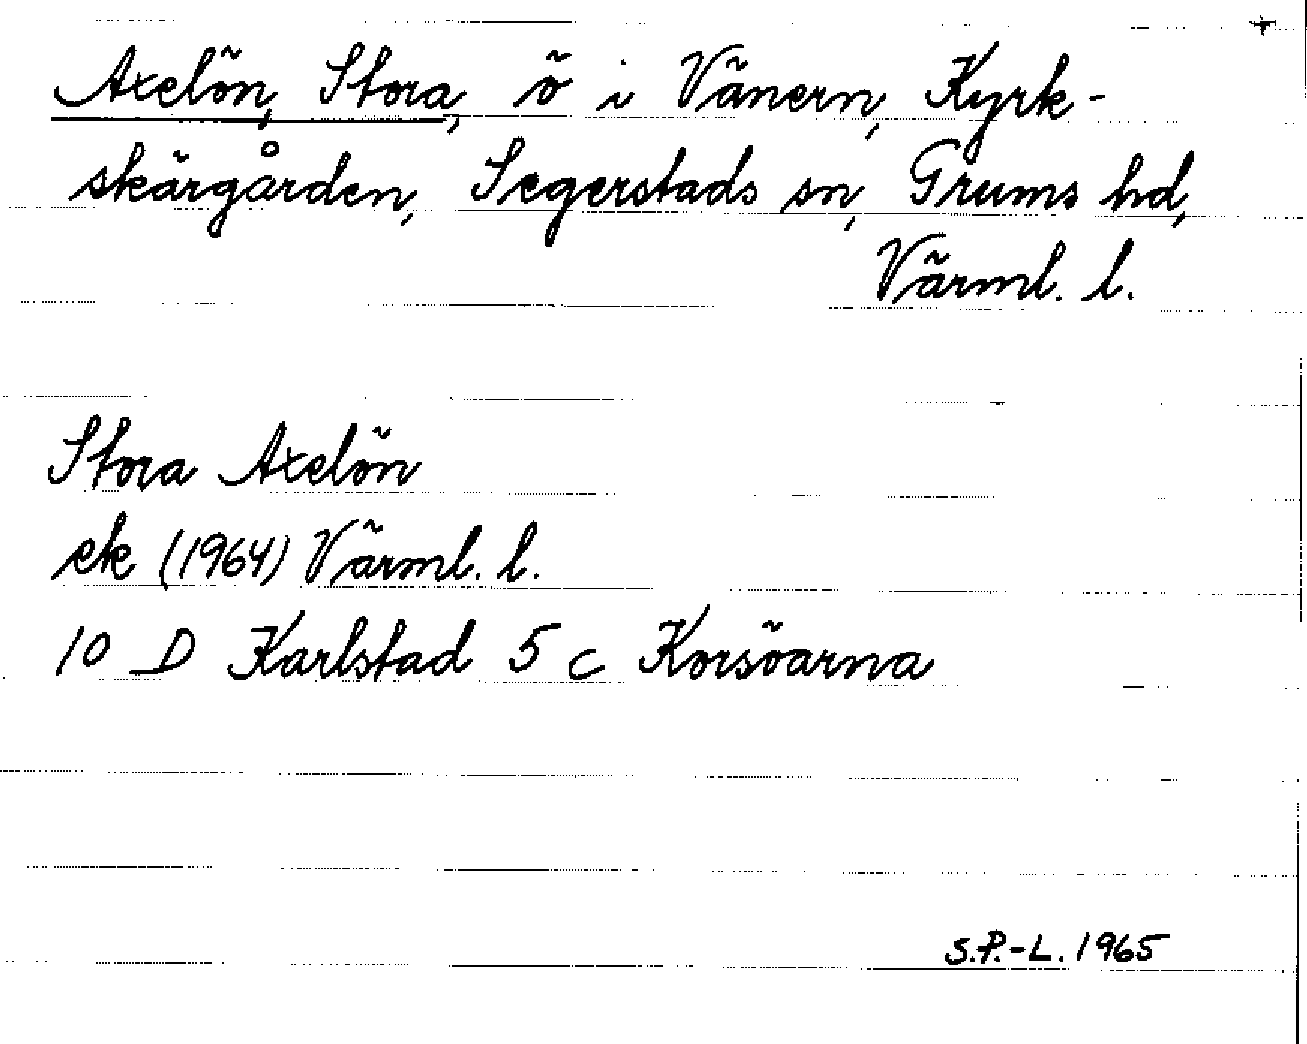 Axelön, Stora, ö i Vänern, Kyrk-
skärgården, Segerstads sn, Grums hd,
Värml. l.
Stora Axelön
ek (1964) Värml. l.
10 D Karlstad 5 c Korsöarna
S.P.-L. 1965